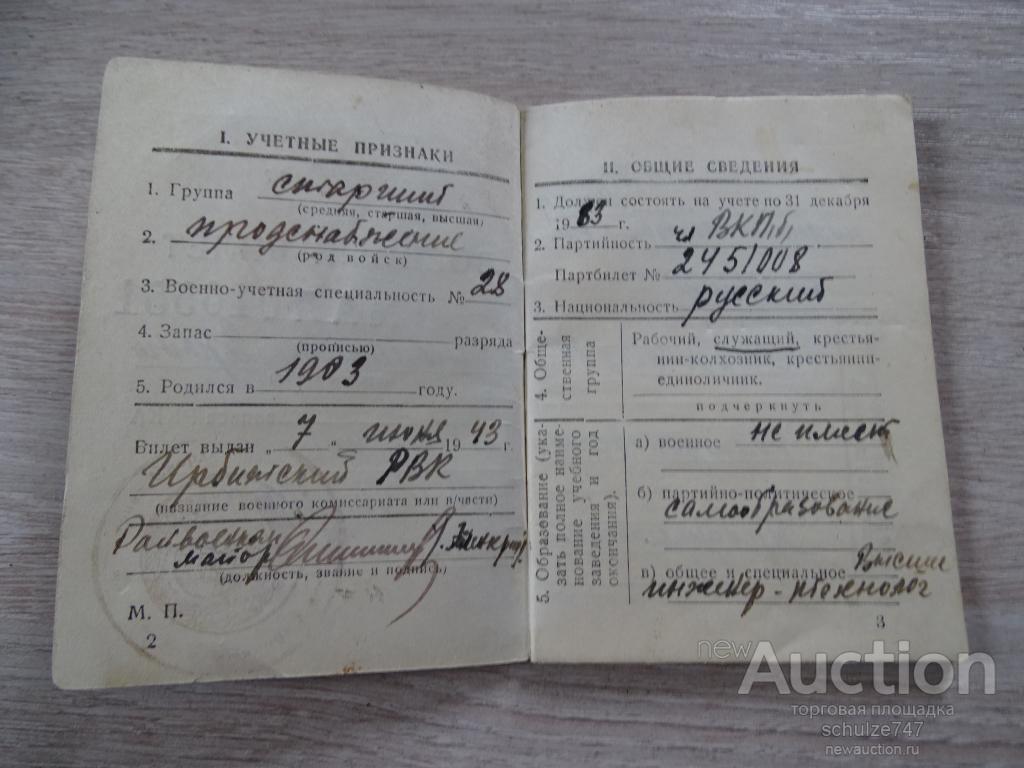 I. УЧЕТНЫЕ ПРИЗНАКИ
1. Группа старший
(средняя, старшая, высшая)
2. продснабжение
(род войск)
3. Военно-учетная специальность № 28
4. Запас разряда
(прописью)
5. Родился в 1903 году.
Билет выдан „ 7 " июня 1943 г.
Ирбитский РВК
(название военного комиссариата или в/части)
Райвоенком
майор
(должность, звание и подпись)
М. П.
2
II. ОБЩИЕ СВЕДЕНИЯ
1. Должен состоять на учете по 31 декабря
1953 г.
2. Партийность чл ВКПб
Партбилет № 2451008
3. Национальность русский
4. Обще-
ственная
группа
Рабочий, служащий, крестья-
нин-колхозник, крестьянин-
единоличник.
подчеркнуть
5. Образование (ука-
зать полное наиме-
нование учебного
заведения и год
окончания).
а) военное не имеет
б) партийно-политическое
самообразование
в) общее и специальное Высшее
инженер-технолог
3
newAuction
торговая площадка
schulze747
newauction.ru